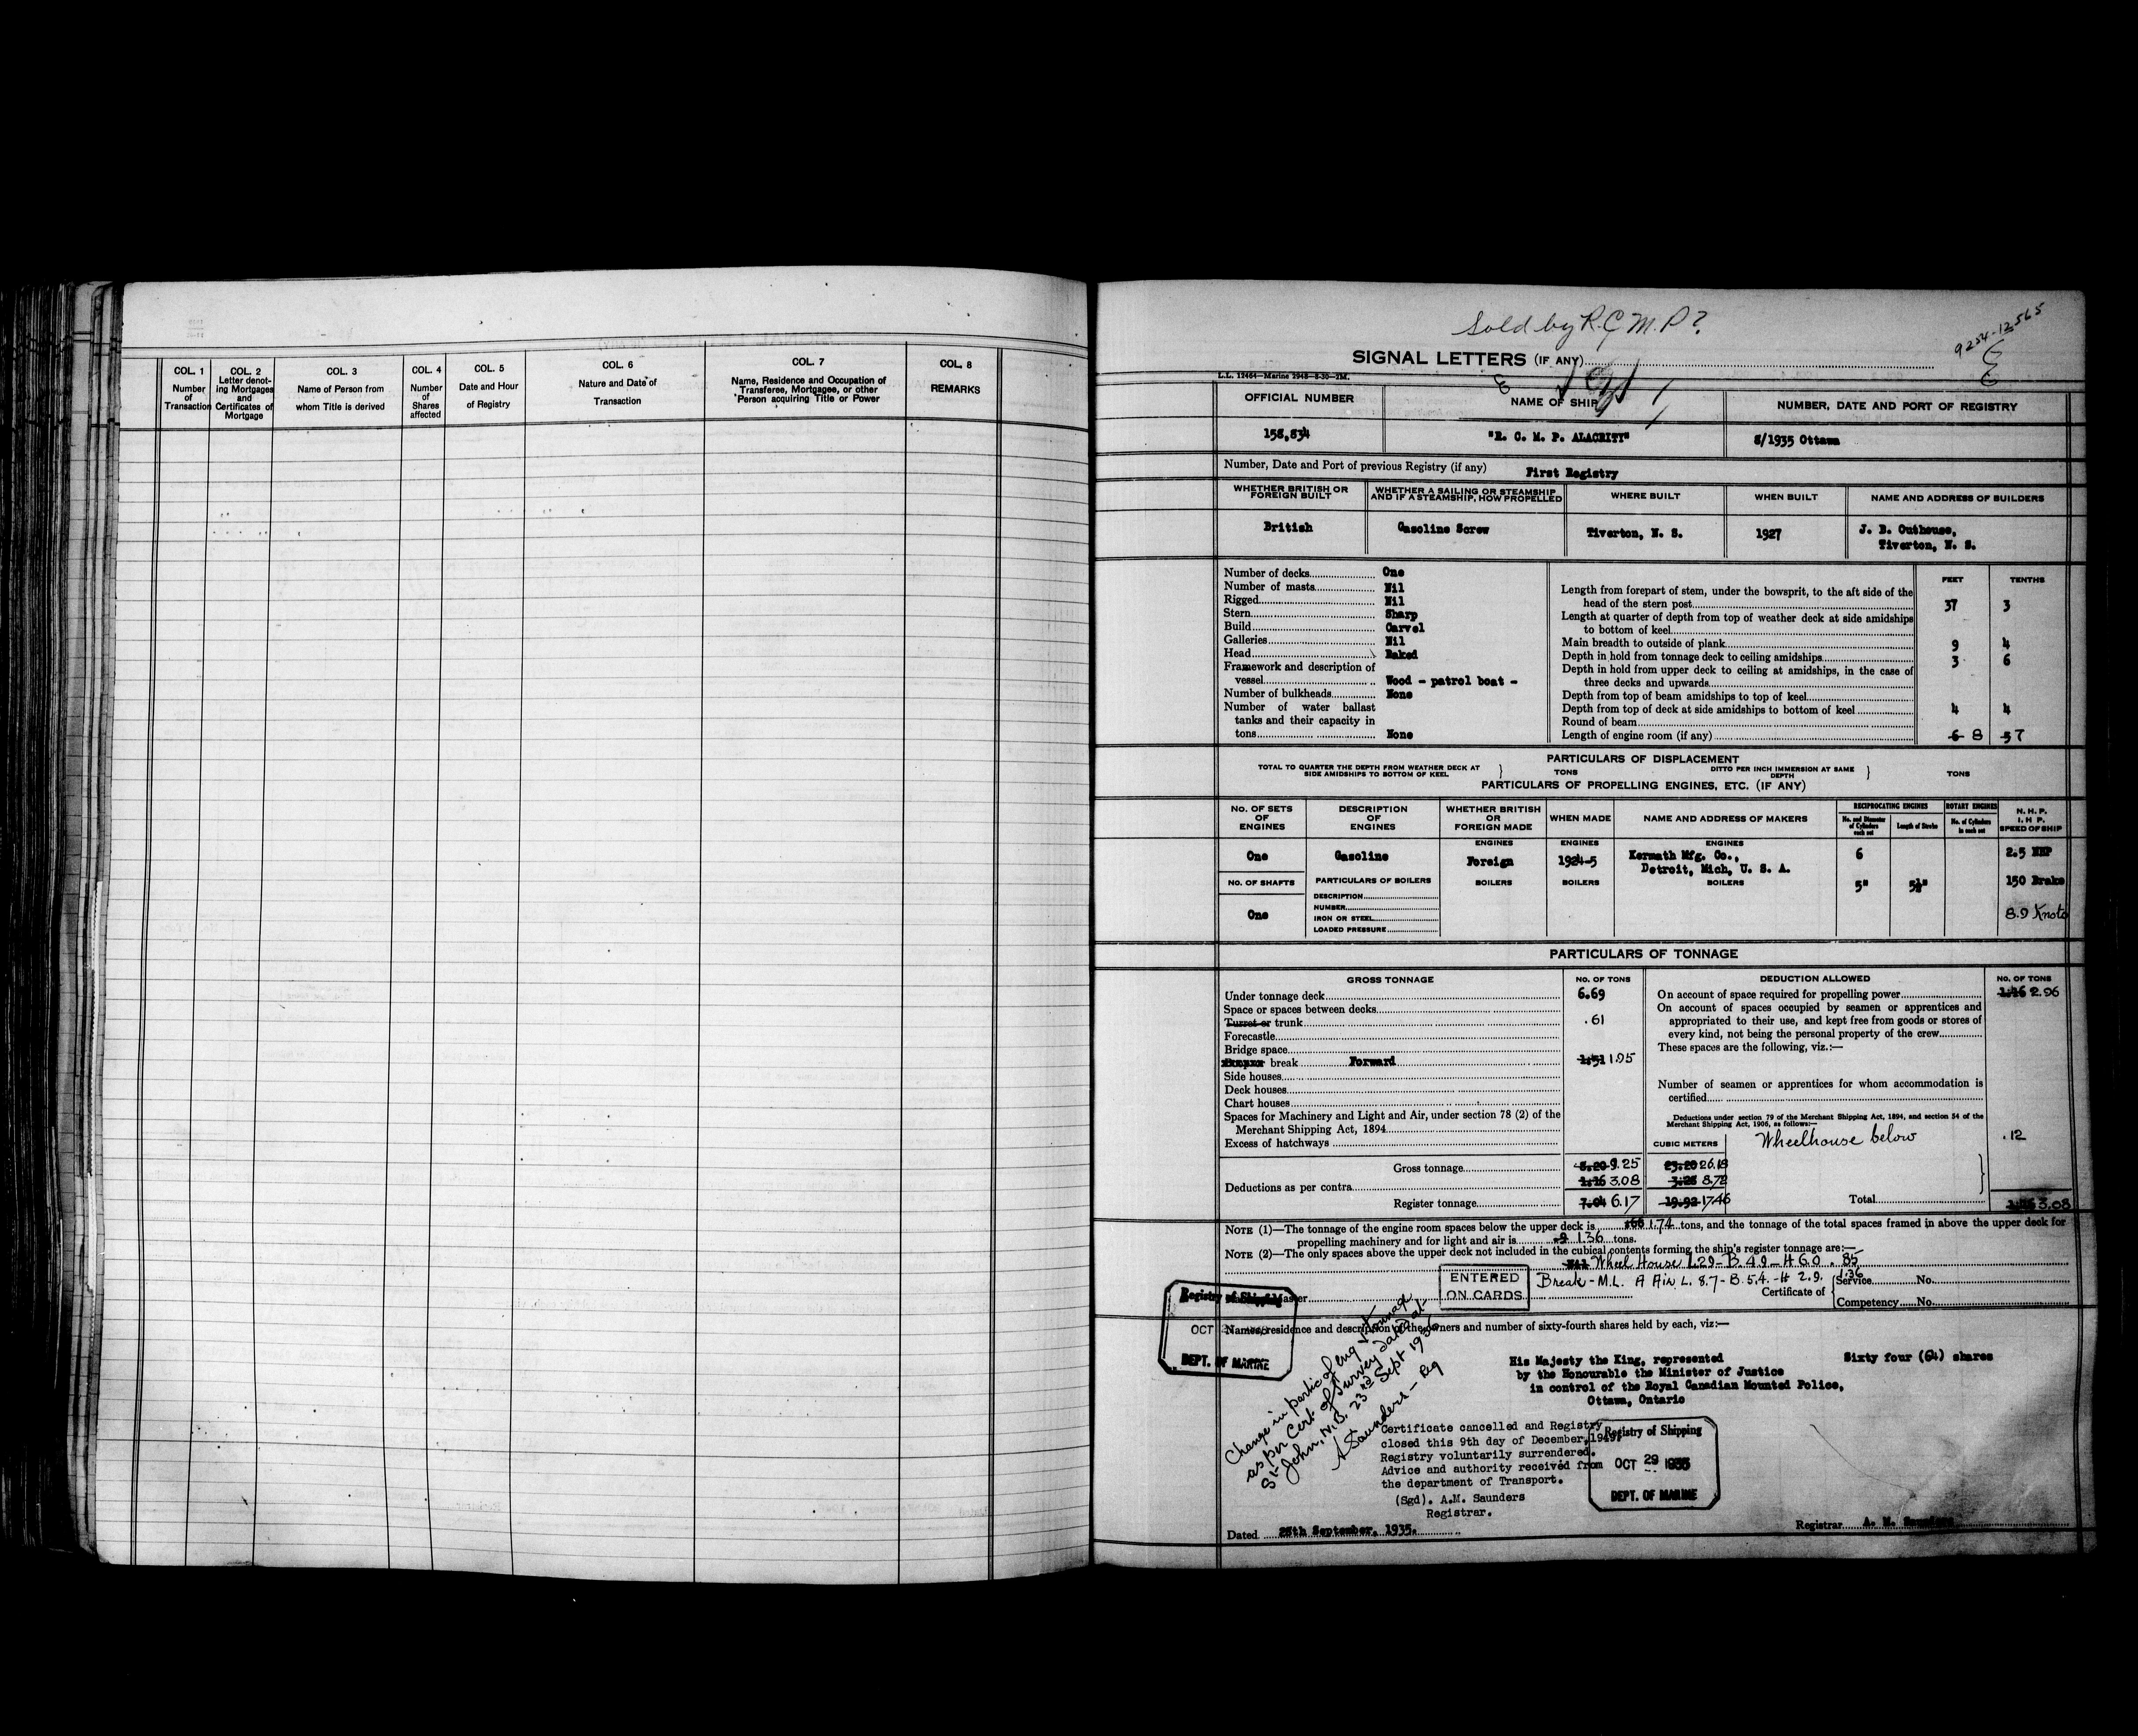 COL. 1
Number
of
Transaction
COL. 2
Letter denot-
ing Mortgages
and
Certificates of
Mortgage
COL. 3
Name of Person from
whom Title is derived
COL. 4
Number
of
Shares
affected
COL. 5
Date and Hour
of Registry
COL. 6
Nature and Date of
Transaction
COL. 7
Name, Residence and Occupation of
Transferee, Mortgagee, or other
Person acquiring Title or Power
COL. 8
REMARKS
Sold by R.C.M.P?
9254-12565
SIGNAL LETTERS (IF ANY)
L.L. 12464—Marine 2948—8-30—2M.
OFFICIAL NUMBER
NAME OF SHIP
NUMBER, DATE AND PORT OF REGISTRY
158,834
"R. C. M. P. ALACRITY"
8/1935 Ottawa
Number, Date and Port of previous Registry (if any) First Registry
WHETHER BRITISH OR
FOREIGN BUILT
WHETHER A SAILING OR STEAMSHIP
AND IF A STEAMSHIP, HOW PROPELLED
WHERE BUILT
WHEN BUILT
NAME AND ADDRESS OF BUILDERS
British
Gasoline Screw
Tiverton, N. S.
1927
J. B. Outhouse,
Tiverton, N. S.
Number of decks One
Number of masts Nil
Rigged Nil
Stern Sharp
Build Carvel
Galleries Nil
Head Raked
Framework and description of
vessel Wood - patrol boat -
Number of bulkheads None
Number of water ballast
tanks and their capacity in
tons None
FEET TENTHS
Length from forepart of stem, under the bowsprit, to the aft side of the
head of the stern post 37 3
Length at quarter of depth from top of weather deck at side amidships
to bottom of keel
Main breadth to outside of plank 9 4
Depth in hold from tonnage deck to ceiling amidships 3 6
Depth in hold from upper deck to ceiling at amidships, in the case of
three decks and upwards
Depth from top of beam amidships to top of keel
Depth from top of deck at side amidships to bottom of keel 4 4
Round of beam
Length of engine room (if any) 6 8 5 7
PARTICULARS OF DISPLACEMENT
TOTAL TO QUARTER THE DEPTH FROM WEATHER DECK AT
SIDE AMIDSHIPS TO BOTTOM OF KEEL
TONS
DITTO PER INCH IMMERSION AT SAME
DEPTH
TONS
PARTICULARS OF PROPELLING ENGINES, ETC. (IF ANY)
No. OF SETS
OF
ENGINES
DESCRIPTION
OF
ENGINES
WHETHER BRITISH
OR
FOREIGN MADE
WHEN MADE
NAME AND ADDRESS OF MAKERS
RECIPROCATING ENGINES
No. and Diameter
of Cylinders
each set
Length of Stroke
ROTARY ENGINES
No. of Cylinders
in each set
N. H. P.
I. H. P.
SPEED OF SHIP
ENGINES
ENGINES
ENGINES
One
Gasoline
Foreign
1924-5
Kermath Mfg. Co.,
Detroit, Mich, U. S. A.
6
2.5 NHP
NO. OF SHAFTS
PARTICULARS OF BOILERS
BOILERS
BOILERS
BOILERS
5"
5½"
150 Brake
DESCRIPTION
NUMBER
IRON OR STEEL
LOADED PRESSURE
One
8.9 Knots
PARTICULARS OF TONNAGE
GROSS TONNAGE
No. OF TONS
Under tonnage deck 6.69
Space or spaces between decks
Turret or trunk .61
Forecastle
Bridge space
break Forward 1.51 1.95
Side houses
Deck houses
Chart houses
Spaces for Machinery and Light and Air, under section 78 (2) of the
Merchant Shipping Act, 1894
Excess of hatchways
CUBIC METERS
Gross tonnage 8.20 9.25 23.20 26.18
Deductions as per contra 1.16 3.08 3.28 8.72
Register tonnage 7.04 6.17 19.92 17.46
DEDUCTION ALLOWED
No. OF TONS
On account of space required for propelling power 1.16 2.96
On account of spaces occupied by seamen or apprentices and
appropriated to their use, and kept free from goods or stores of
every kind, not being the personal property of the crew
These spaces are the following, viz.:—
Number of seamen or apprentices for whom accommodation is
certified
Deductions under section 79 of the Merchant Shipping Act, 1894, and section 54 of the
Merchant Shipping Act, 1906, as follows:—
Wheelhouse below .12
Total 1.16 3.08
NOTE (1)—The tonnage of the engine room spaces below the upper deck is 1.74 tons, and the tonnage of the total spaces framed in above the upper deck for
propelling machinery and for light and air is 1.36 tons.
NOTE (2)—The only spaces above the upper deck not included in the cubical contents forming the ship's register tonnage are:—
Nil Wheel House L29-B.49-H60 .85
Break - M.L. A Air L. 8.7-B.5.4.-H 2.9. 1.36
ENTERED
ON CARDS
Certificate of
Service No.
Competency No.
Registry of Shipping
OCT
DEPT. OF MARINE
Names, residence and description of the owners and number of sixty-fourth shares held by each, viz:—
His Majesty the King, represented
by the Honourable the Minister of Justice
in control of the Royal Canadian Mounted Police,
Ottawa, Ontario
Sixty four (64) shares
Change in partic of eng & tonnage
as per Cert. of Survey dated at
St John, N.B. 23rd Sept 1936
A Saunders - Rg
Certificate cancelled and Registry
closed this 9th day of December, 1949.
Registry voluntarily surrendered.
Advice and authority received from
the department of Transport.
(Sgd). A.M. Saunders
Registrar.
Registry of Shipping
OCT 29 1935
DEPT. OF MARINE
Dated 25th September, 1935.
Registrar A. M. Saunders